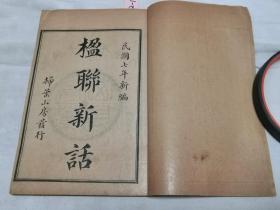 民國七年新編
楹聯新話
掃葉山房發行